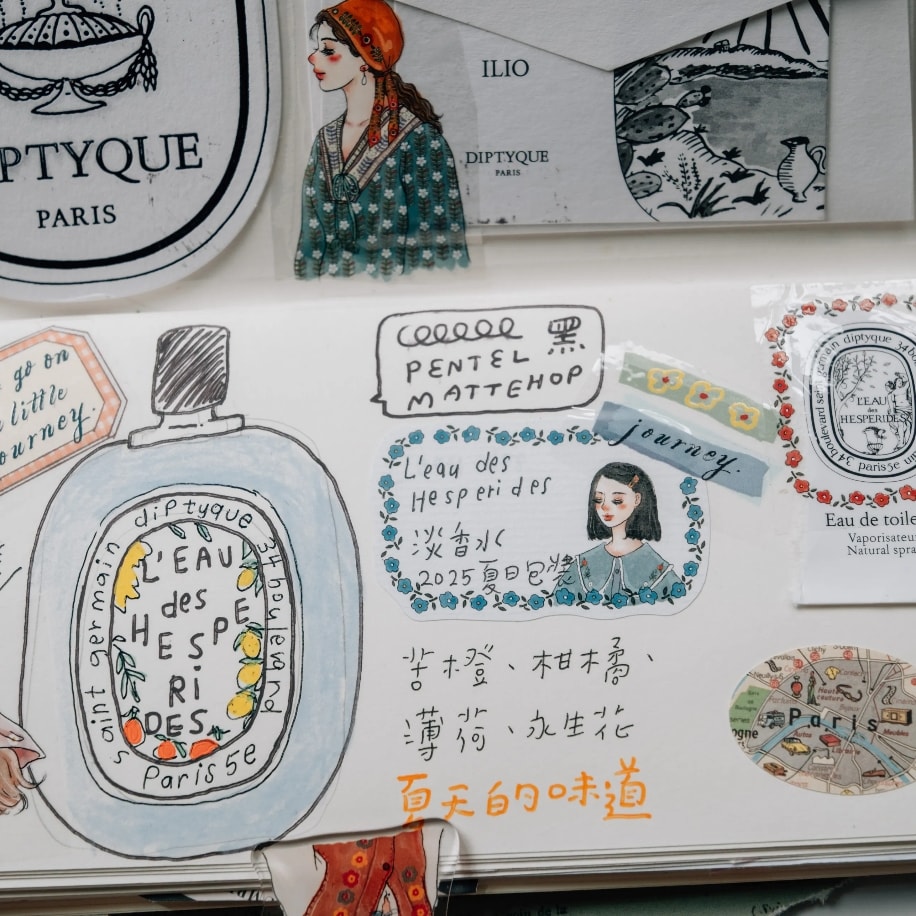 DIPTYQUE
PARIS
ILIO
DIPTYQUE
PARIS
go on
little
journey.
PENTEL 黑
MATTEHOP
journey.
L'eau des
Hesperides
淡香水
2025夏日包裝
diptyque 34 boulevard saint germain paris5e
L'EAU
des
HESPERIDES
Eau de toile
Vaporisateu
Natural spra
diptyque 34 boulevard saint germain Paris5e
L'EAU
des
HESPE
RI
DES.
苦橙、柑橘、
薄荷、永生花
夏天的味道
Paris